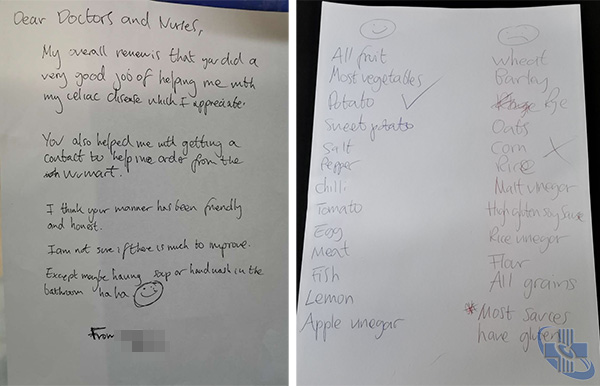 Dear Doctors and Nurses,
My overall renew is that you did a
very good job of helping me with
my celiac disease which I appreciate.
You also helped me with getting a
contact to help me order from the
Wumart.
I think your manner has been friendly
and honest.
I am not sure if there is much to improve.
Except maybe having soap or handwash in the
bathroom haha
From
All fruit
Most vegetables
Potato
Sweet potato
Salt
Pepper
Chilli
Tomato
Egg
Meat
Fish
Lemon
Apple vinegar
Wheat
Barley
Rye
Oats
Corn
Rice
Malt vinegar
High gluten soy sauce
Rice vinegar
Flour
All grains
*Most sauces
have gluten